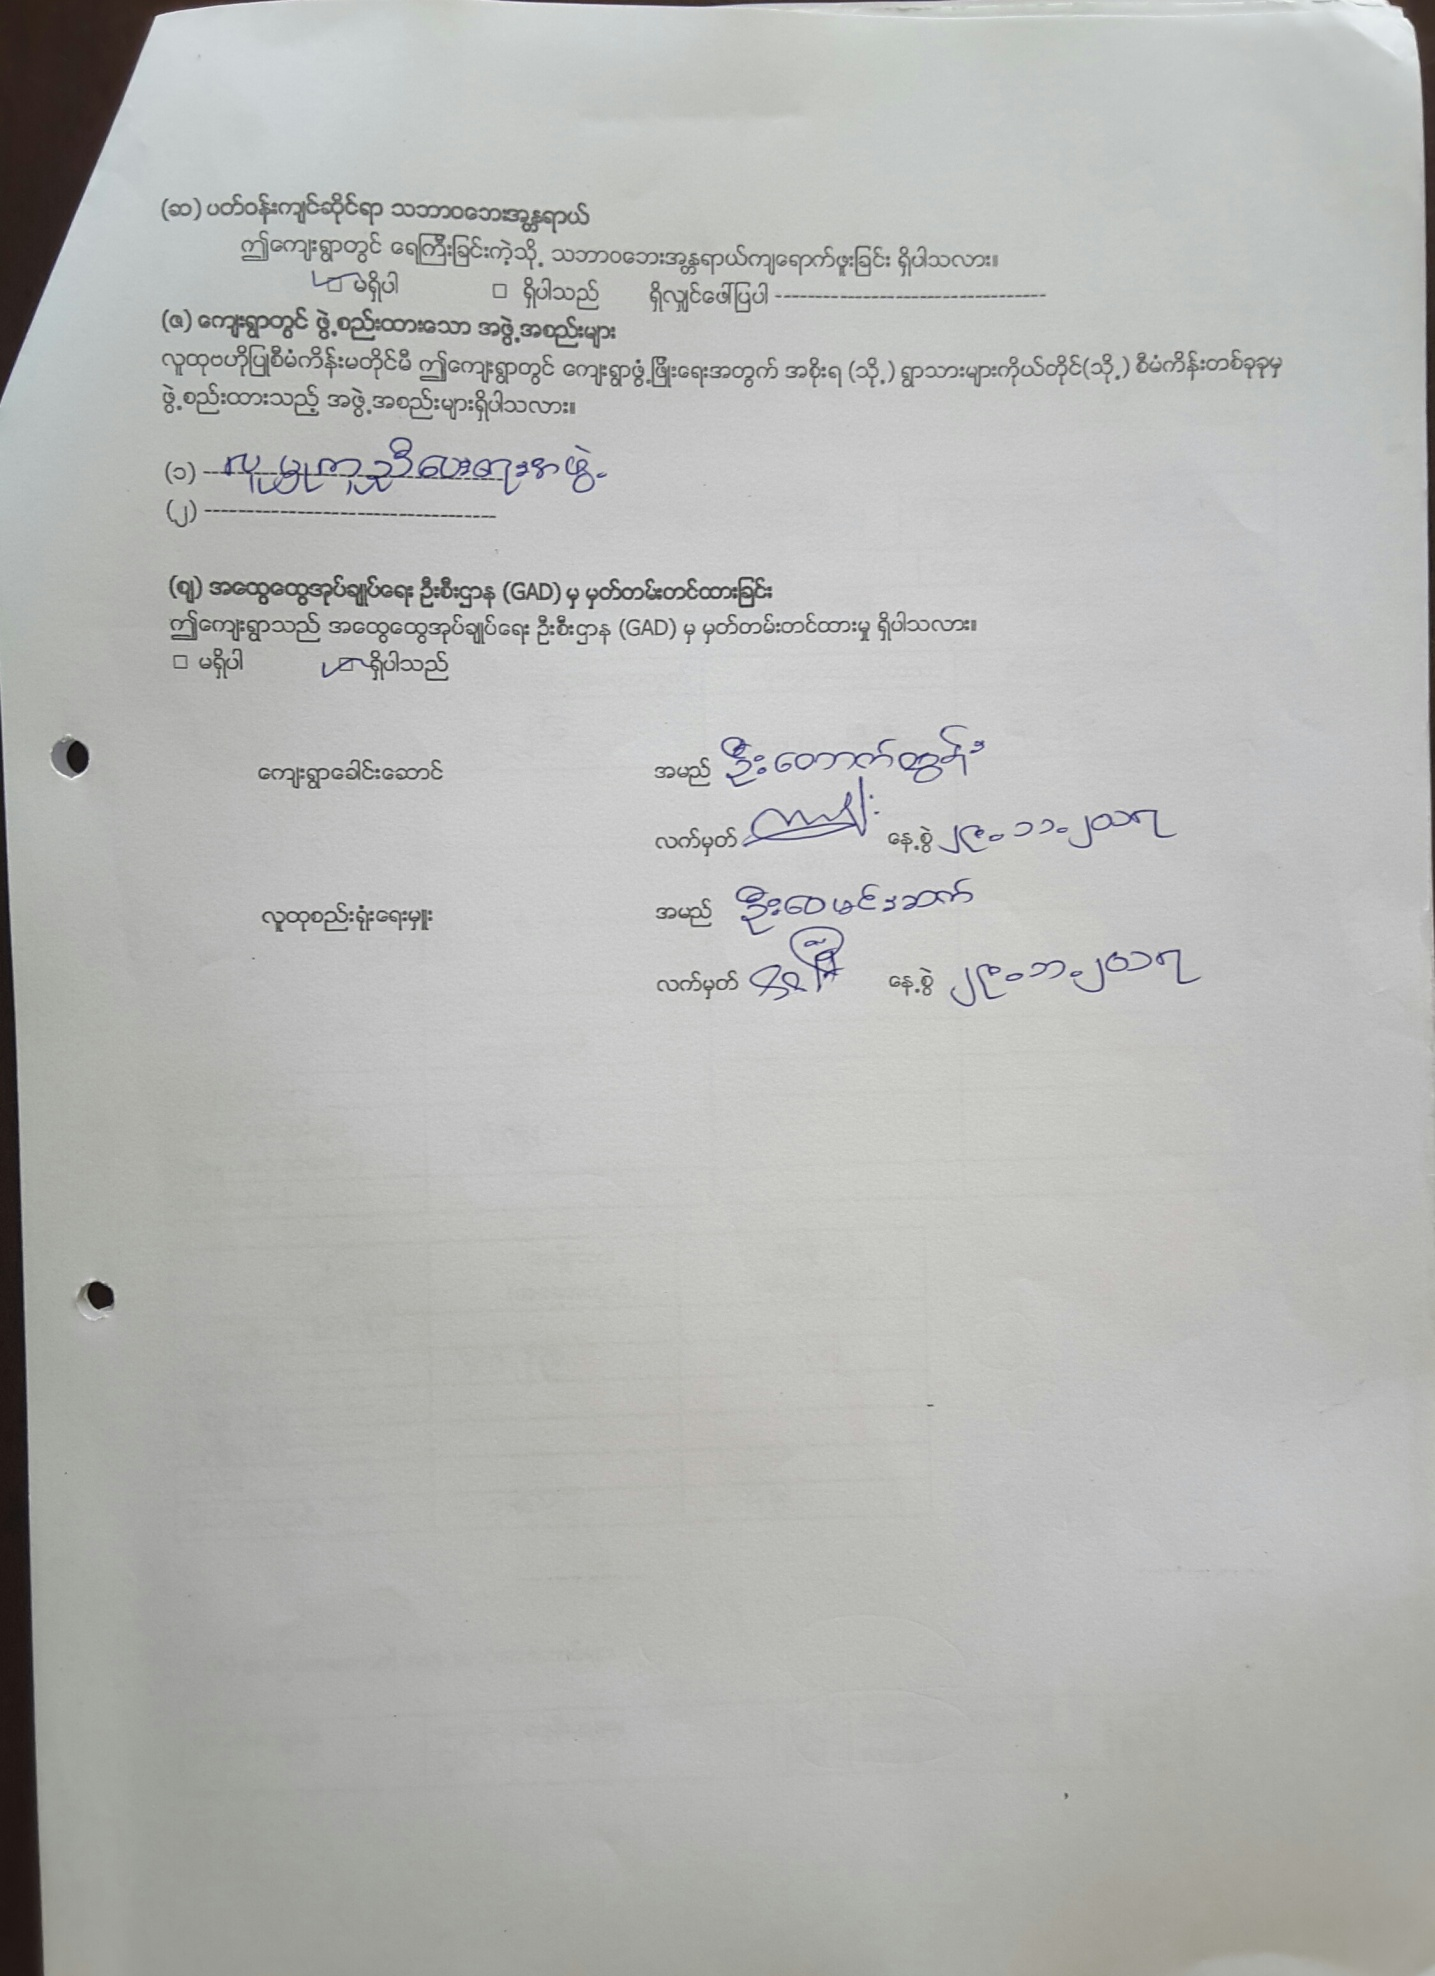 (ဆ) ပတ်ဝန်းကျင်ဆိုင်ရာ သဘာဝဘေးအန္တရာယ်
ဤကျေးရွာတွင် ရေကြီးခြင်းကဲ့သို့ သဘာဝဘေးအန္တရာယ်ကျရောက်ဖူးခြင်း ရှိပါသလား။
☑ မရှိပါ □ ရှိပါသည် ရှိလျှင်ဖေါ်ပြပါ ----------------------------------
(ဇ) ကျေးရွာတွင် ဖွဲ့စည်းထားသော အဖွဲ့အစည်းများ
လူထုဗဟိုပြုစီမံကိန်းမတိုင်မီ ဤကျေးရွာတွင် ကျေးရွာဖွံ့ဖြိုးရေးအတွက် အစိုးရ (သို့) ရွာသားများကိုယ်တိုင်(သို့) စီမံကိန်းတစ်ခုခုမှ
ဖွဲ့စည်းထားသည့် အဖွဲ့အစည်းများရှိပါသလား။
(၁) လူမှုကူညီပေးရေးအဖွဲ့
(၂) ------------------------------------
(ဈ) အထွေထွေအုပ်ချုပ်ရေး ဦးစီးဌာန (GAD) မှ မှတ်တမ်းတင်ထားခြင်း
ဤကျေးရွာသည် အထွေထွေအုပ်ချုပ်ရေး ဦးစီးဌာန (GAD) မှ မှတ်တမ်းတင်ထားမှု ရှိပါသလား။
□ မရှိပါ ☑ ရှိပါသည်
ကျေးရွာခေါင်းဆောင် အမည် ဦးတောက်ထွန်း
လက်မှတ် နေ့စွဲ ၂၉.၁၁.၂၀၁၇
လူထုစည်းရုံးရေးမှူး အမည် ဦးဝေမင်းဆက်
လက်မှတ် နေ့စွဲ ၂၉.၁၁.၂၀၁၇